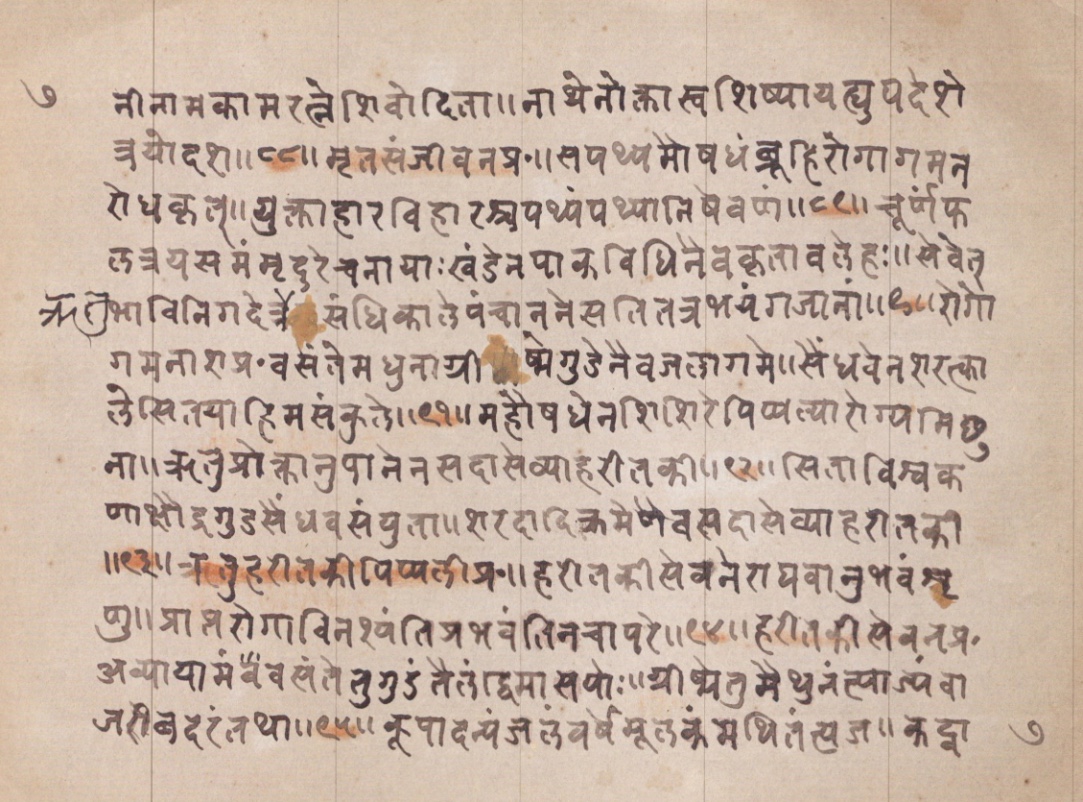 ७
नीनामकामरत्नेशिवोदिता॥नाथेनोक्तास्वशिष्यायह्युपदेशे
त्रयोदश॥८८॥मृतसंजीवनप्र॰॥सपथ्यमौषधंब्रूहिरोगागमन
रोधकृत्॥युक्ताहारविहारश्चपथ्यंपथ्यानिषेवणं॥८९॥चूर्णंफ
लत्रयसमंमृदुरेचनायाःखंडेनपाकविधिनैवकृतावलेहः॥सेवेत्
ऋतुभाविनिगदेत्रै संधिकालेपंचाननेसतितत्रभयंगजानां॥९०॥रोगो
गमनाशप्र॰वसंतेमधुनाग्री ष्मेगुडेनैवजलागमे॥सैंधवेनशरत्का
लेसितयाहिमसंकुले॥९१॥महौषधेनशिशिरेपिप्पल्यारोग्यमिछु
ना॥ऋतुप्रोक्तानुपानेनसदासेव्याहरीतकी॥९२॥सिताविश्वक
णाक्षौद्रगुडसैंधवसंयुता॥शरदादिक्रमेणैवसदासेव्याहरीतकी
॥९३॥ऋतुहरीतकीपिप्पलीप्र॰॥हरीतकीसेवनेराघवानुभवंशृ
णु॥प्राप्तरोगाविनश्यंतिप्रभवंतिनचापरे॥९४॥हरीतकीसेवनप्र॰
अव्यायामंचैवसंतेतुगुडंतैलंद्विमासयोः॥ग्रीष्मेतुमैथुनंत्याज्यंवा
जरीबदरंतथा॥९५॥कूपादन्यंजलंवर्षेमूलकंमथितंत्यज॥कद्वा
७